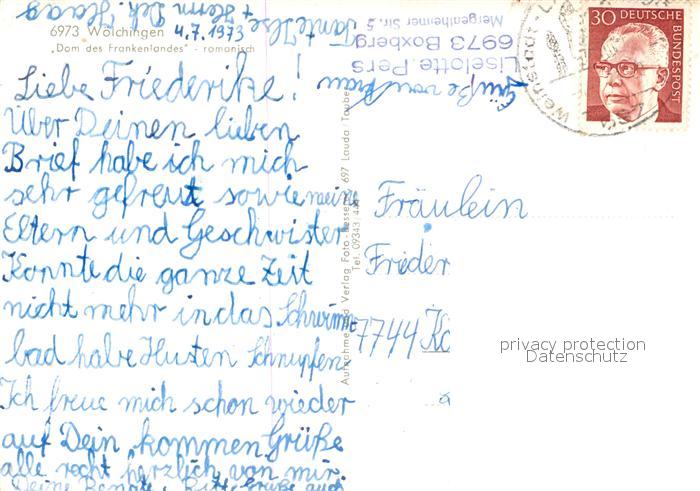 6973 Wölchingen 4.7.1973
„Dom des Frankenlandes" - romanisch
Liebe Friederike!
Über Deinen lieben
Brief habe ich mich
sehr gefreut sowie meine
Eltern und Geschwister
Konnte die ganze Zeit
nicht mehr in das Schwimm-
bad habe Husten Schnupfen
Ich freue mich schon wieder
auf Dein kommen Grüße
alle recht herzlich von mir.
Deine Renate, Bitte Grüße auch
Tante Ilse + Herrn Dek. Haag
Liselotte Pers
6973 Boxberg
Mergentheimer Str. 5
Grüße von
Aufnahme und Verlag Foto-Besse 697 Lauda Tauber
Tel. 09343
30 DEUTSCHE
BUNDESPOST
Fräulein
Frieder
7744 Kö
privacy protection
Datenschutz